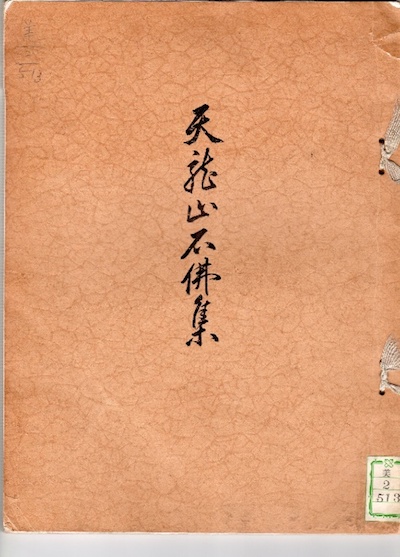 天龍山石佛集
美
2
513
513